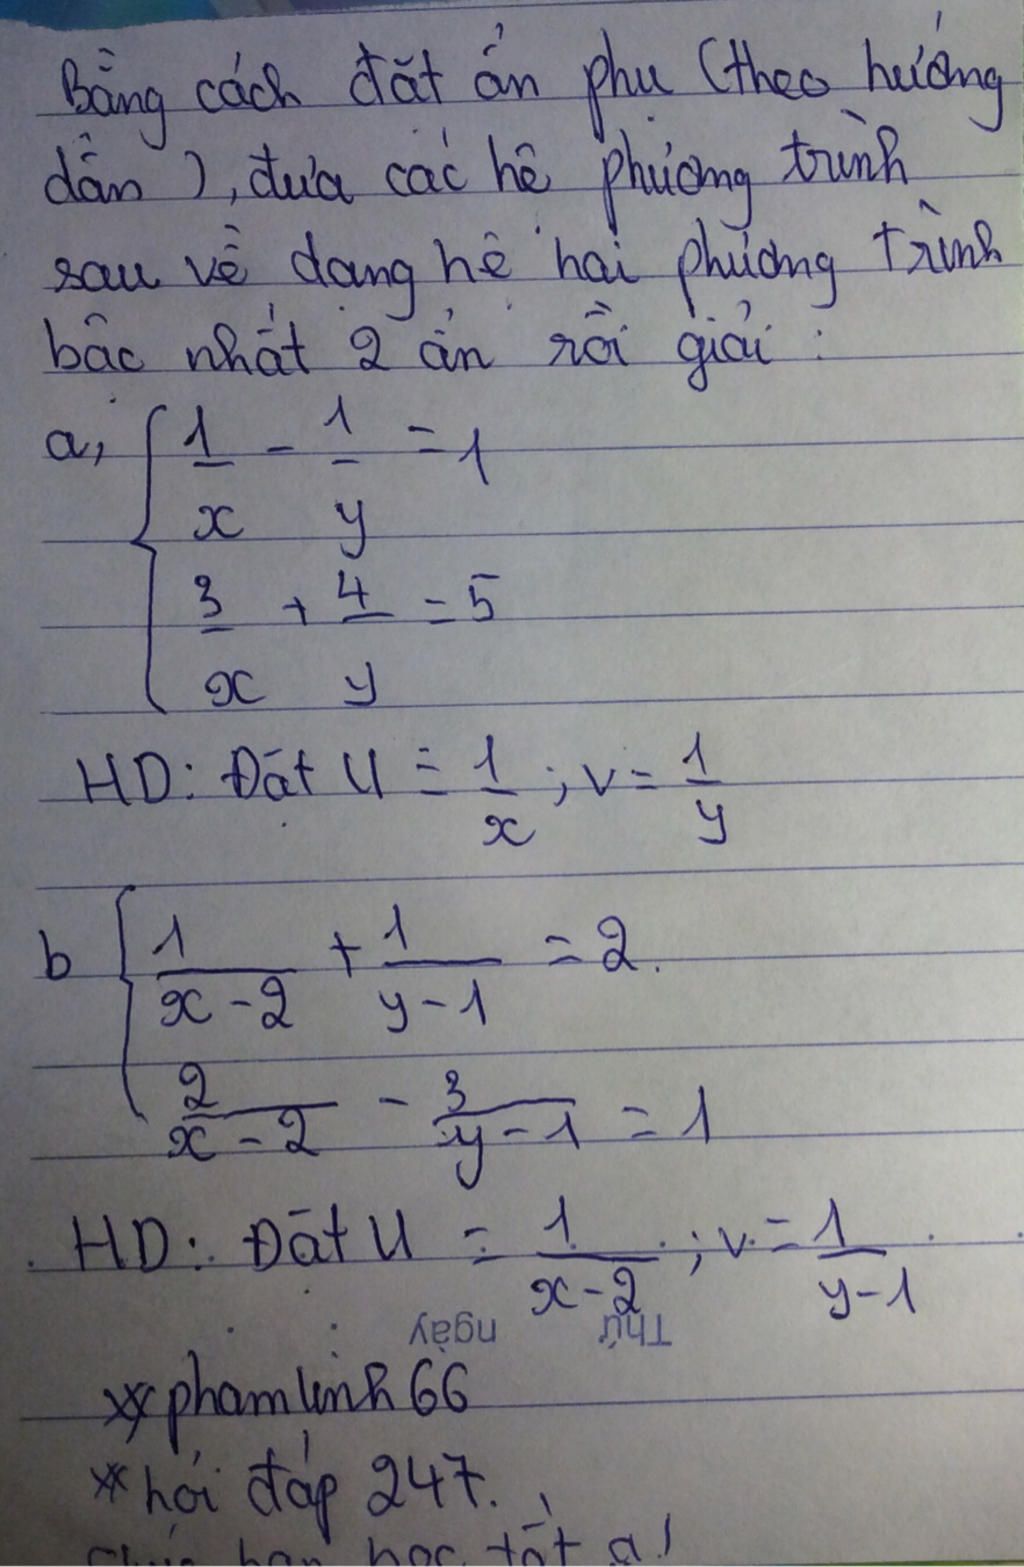 Bằng cách đặt ẩn phụ (theo hướng
dẫn), đưa các hệ phương trình
sau về dạng hệ hai phương trình
bậc nhất 2 ẩn rồi giải :
a, { 1/x - 1/y = 1
3/x + 4/y = 5
HD: Đặt U = 1/x ; v = 1/y
b { 1/(x-2) + 1/(y-1) = 2.
2/(x-2) - 3/(y-1) = 1
HD: Đặt U = 1/(x-2) ; v = 1/(y-1)
Thứ ngày
** phamlinh66
* hỏi đáp 247.
bạn học tốt ạ!